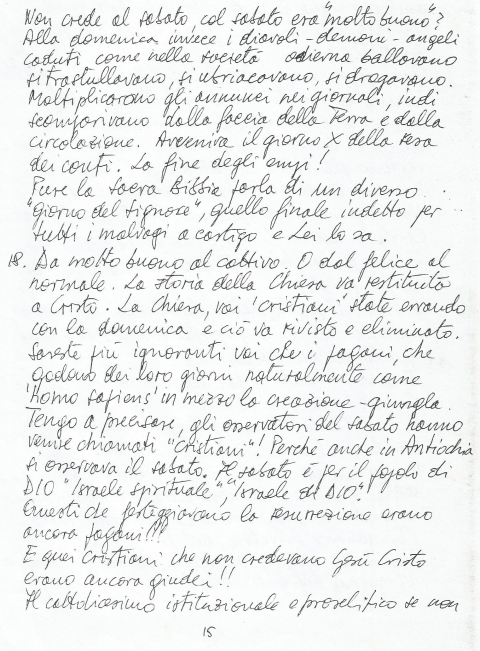 Non crede al sabato, col sabato era "molto buono"?
Alla domenica invece i diavoli-demoni-angeli
caduti come nella società odierna ballavano
si trastullavano, si ubriacavano, si drogavano.
Moltiplicarono gli annunci nei giornali, indi
scomparivano dalla faccia della Terra e dalla
circolazione. Avveniva il giorno X della resa
dei conti. La fine degli empi!
Pure la Sacra Bibbia parla di un diverso
"giorno del Signore", quello finale indetto per
tutti i malvagi a castigo e Lei lo sa.
18. Da molto buono al cattivo. O dal felice al
normale. La storia della Chiesa va restituita
a Cristo. La Chiesa, voi 'cristiani' state errando
con la domenica e ciò va rivisto e eliminato.
Sareste più ignoranti voi che i pagani, che
godono dei loro giorni naturalmente come
'homo sapiens' in mezzo la creazione-giungla.
Tengo a precisare, gli osservatori del sabato hanno
chiamati "Cristiani"! Perché anche in Antiochia
si osservava il sabato. Il sabato è per il popolo di
DIO "Israele spirituale", "Israele di DIO".
Questi che festeggiavano la resurrezione erano
ancora pagani!!!
E quei cristiani che non credevano Gesù Cristo
erano ancora giudei!!
Il cattolicesimo istituzionale e proselitico se non
15